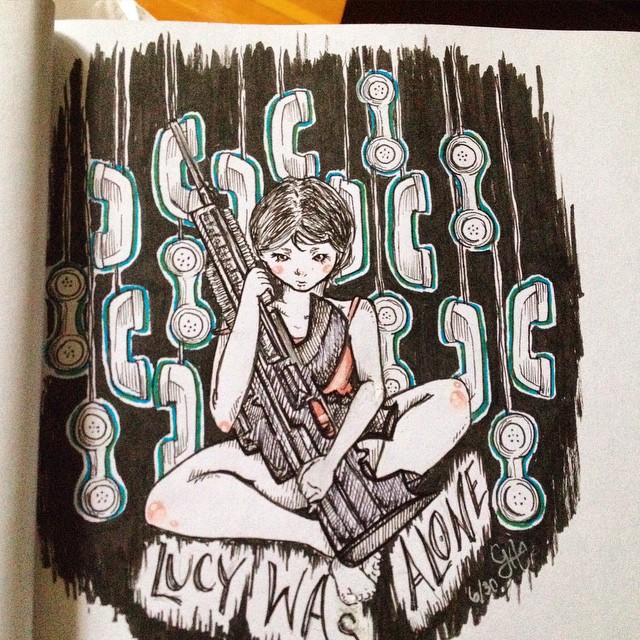 LUCY WAS
ALONE
6/30